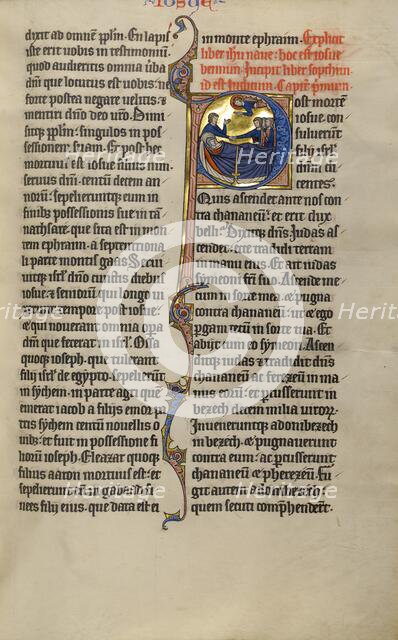 Iosue
dixit ad omnem pplm. En lapis
iste erit uobis in testimoniū
quod audieritis omnia uba
dni que locutus est uobis: ne
forte postea negare uelitis
mentiri dno deo uro. Dimi
sitqz pplm: singulos in pos
sessionem suam. Et post hec
mortuus est iosue filius num
seruus dni: centū decem an
norum: sepelieruntqz eum in
finibz possessionis sue in tā
nathsare que sita est in monte
ephraim: a septentrionali
parte montis gaas. Seruiuitqz
isrl dno cunctis diebus
iosue: et seniorū qui longo
tempore uixerunt post iosue:
et qui nouerant omnia opa
dni que fecerat in isrl. Ossa
quoqz ioseph. que tulerant
filij isrl de egypto: sepelierunt
in sychem. in parte agri quē
emerat iacob a filijs emor
patris sychem centum nouellis
ouibz: et fuit in possessione
filiorū ioseph. Eleazar quoqz
filius aaron mortuus est: et
sepelierunt eum in gabaad
finees filij eius. que data est ei
in monte ephraim. Explicit
liber ihu naue: hoc est iosue
bennum. Incipit liber sopthim
id est iudicum. Capitl'm p'mum.
Post mortē
iosue. con
suluerunt
filij isrl
dnm di
centes.
Quis ascendet ante nos con
tra chananeū: et erit dux
belli: Dixitqz dns. Iudas as
cendet: ecce tradidi terram
in manu eius. Et ait iudas
symeoni fratri suo. Ascende
mecum in sorte mea. et pugna
contra chananeū: ut et ego
pergam tecū in sorte tua. Et
abijt cum eo symeon. Ascen
ditqz iudas. et tradidit dns
chananeū ac ferezeū in ma
nus eorū: et percusserunt in
bezech decem milia uirorz.
Inueneruntqz adonibezech
in bezech: et pugnauerunt
contra eum: ac percusserunt
chananeū et pherezeū. Fu
git autem adonibezech:
quem secuti comphenderunt
Heritage
Heritage
Heritage
Heritage
Heritage
Heritage